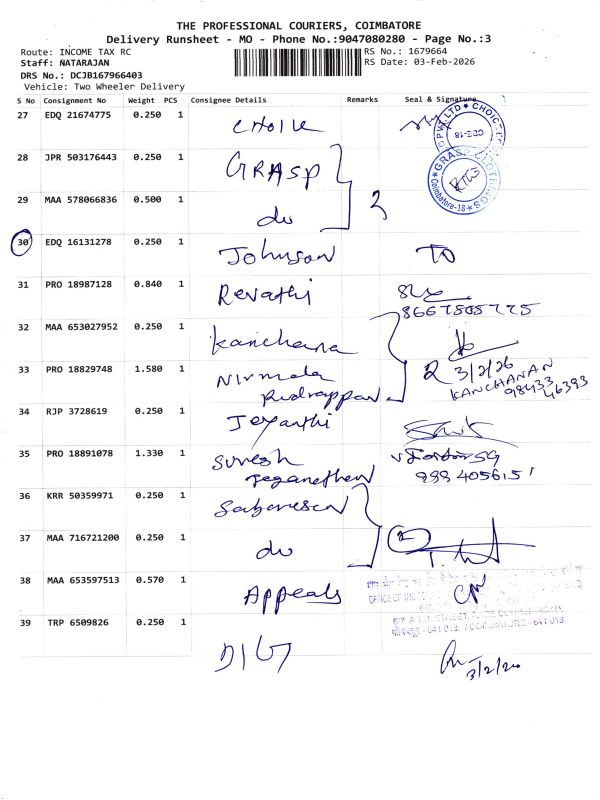 THE PROFESSIONAL COURIERS, COIMBATORE
Delivery Runsheet - MO - Phone No.:9047080280 - Page No.:3
Route: INCOME TAX RC
RS No.: 1679664
Staff: NATARAJAN
RS Date: 03-Feb-2026
DRS No.: DCJB167966403
Vehicle: Two Wheeler Delivery
S No Consignment No Weight PCS Consignee Details Remarks Seal & Signature
27 EDQ 21674775 0.250 1 CHOICE
28 JPR 503176443 0.250 1 GRASP
GRASP CLOTHINGS
Coimbatore-18
29 MAA 578066836 0.500 1 do 2
30 EDQ 16131278 0.250 1 Johnson
31 PRO 18987128 0.840 1 Revathi
8667505775
32 MAA 653027952 0.250 1 Kanchana
33 PRO 18829748 1.580 1 Nirmala Rudrappan 2 3/2/26
KANCHANAN
98433 46393
34 RJP 3728619 0.250 1 Jeyanthi
35 PRO 18891078 1.330 1 Suresh Jeganethan
999 4056151
36 KRR 50359971 0.250 1
37 MAA 716721200 0.250 1 do 2
38 MAA 653597513 0.570 1 Appeals
39 TRP 6509826 0.250 1
3/2/26